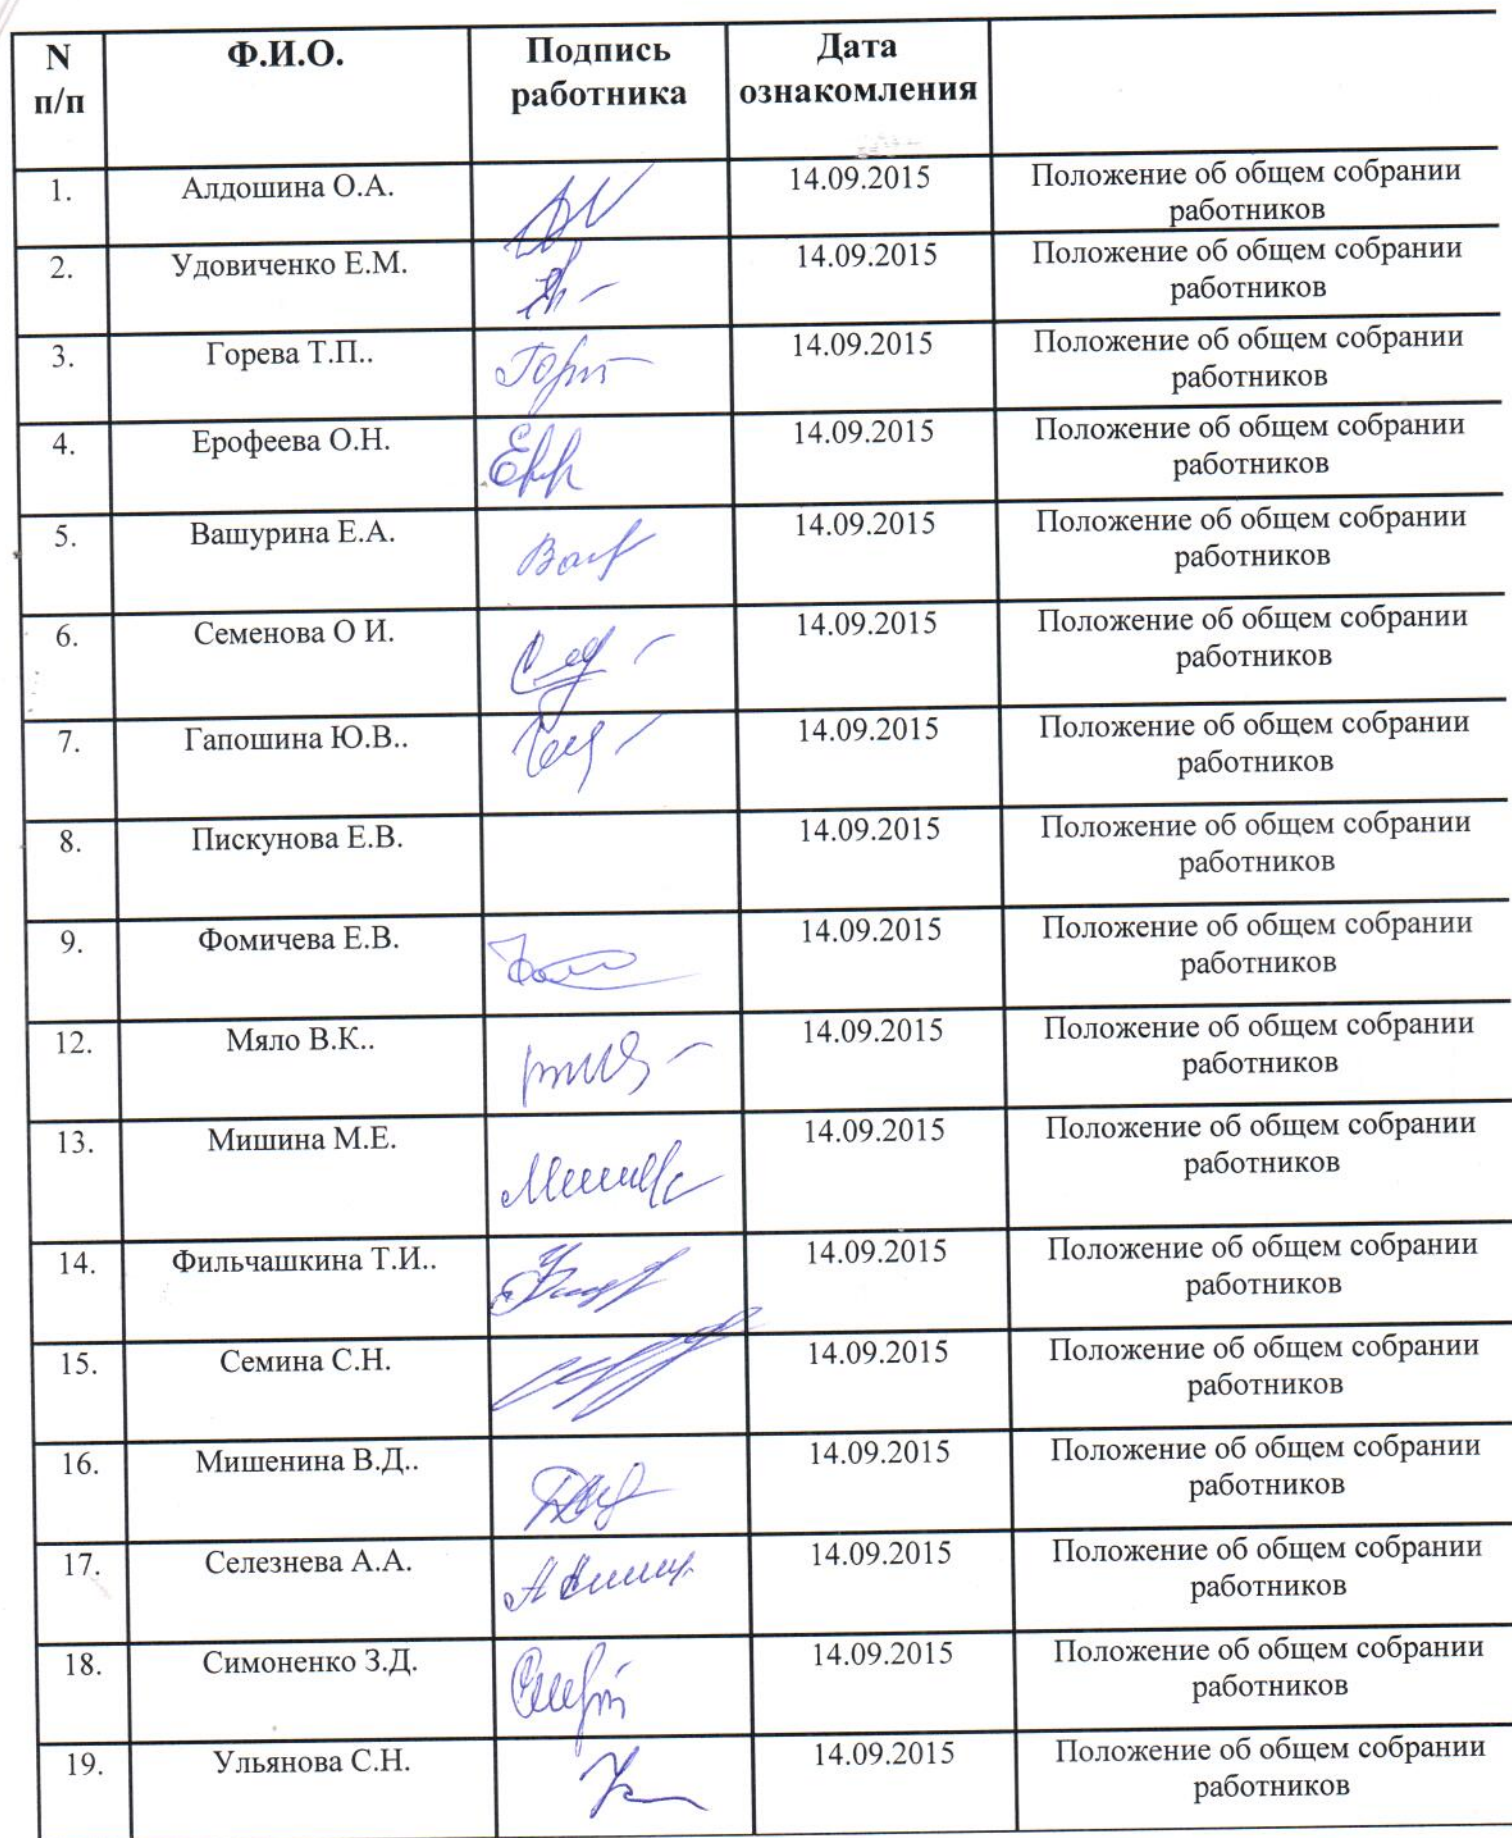 N п/п Ф.И.О. Подпись работника Дата ознакомления
1. Алдошина О.А. 14.09.2015 Положение об общем собрании
работников
2. Удовиченко Е.М. 14.09.2015 Положение об общем собрании
работников
3. Горева Т.П.. 14.09.2015 Положение об общем собрании
работников
4. Ерофеева О.Н. 14.09.2015 Положение об общем собрании
работников
5. Вашурина Е.А. 14.09.2015 Положение об общем собрании
работников
6. Семенова О И. 14.09.2015 Положение об общем собрании
работников
7. Гапошина Ю.В.. 14.09.2015 Положение об общем собрании
работников
8. Пискунова Е.В. 14.09.2015 Положение об общем собрании
работников
9. Фомичева Е.В. 14.09.2015 Положение об общем собрании
работников
12. Мяло В.К.. 14.09.2015 Положение об общем собрании
работников
13. Мишина М.Е. 14.09.2015 Положение об общем собрании
работников
14. Фильчашкина Т.И.. 14.09.2015 Положение об общем собрании
работников
15. Семина С.Н. 14.09.2015 Положение об общем собрании
работников
16. Мишенина В.Д.. 14.09.2015 Положение об общем собрании
работников
17. Селезнева А.А. 14.09.2015 Положение об общем собрании
работников
18. Симоненко З.Д. 14.09.2015 Положение об общем собрании
работников
19. Ульянова С.Н. 14.09.2015 Положение об общем собрании
работников